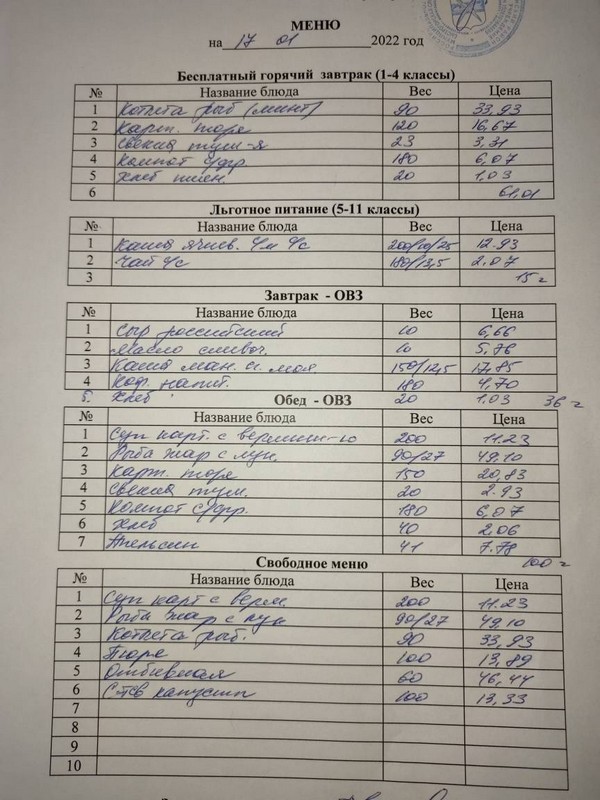 МЕНЮ
на 17 01 2022 год
Бесплатный горячий завтрак (1-4 классы)
№ Название блюда Вес Цена
1 Котлета рыб (минт) 90 33,93
2 Карт. пюре 120 16,67
3 Свекла туш-я 23 3,31
4 Компот с/фр. 180 6,07
5 Хлеб пшен. 20 1,03
6 61,01
Льготное питание (5-11 классы)
№ Название блюда Вес Цена
1 Каша ячнев. с/м с/с 200/10/25 12.93
2 Чай с/с 180/13,5 2.07
3 15 г
Завтрак - ОВЗ
№ Название блюда Вес Цена
1 Сыр российский 10 6,66
2 Масло сливоч. 10 5,76
3 Каша ман. н. мол. 150/12,5 17,85
4 Коф. напит. 180 4,70
5. Хлеб 20 1.03 36 г
Обед - ОВЗ
№ Название блюда Вес Цена
1 Суп карт. с вермиш-ю 200 11.23
2 Рыба жар с лук. 90/27 49.10
3 Карт. пюре 150 20,83
4 Свекла туш. 20 2.93
5 Компот с/фр. 180 6,07
6 Хлеб 40 2.06
7 Апельсин 41 7.78
100 г
Свободное меню
№ Название блюда Вес Цена
1 Суп карт с верм. 200 11.23
2 Рыба жар с лук 90/27 49.10
3 Котлета рыб. 90 33,93
4 Пюре 100 13,89
5 Отбивная 60 46,44
6 капусты 100 13,33
7
8
9
10